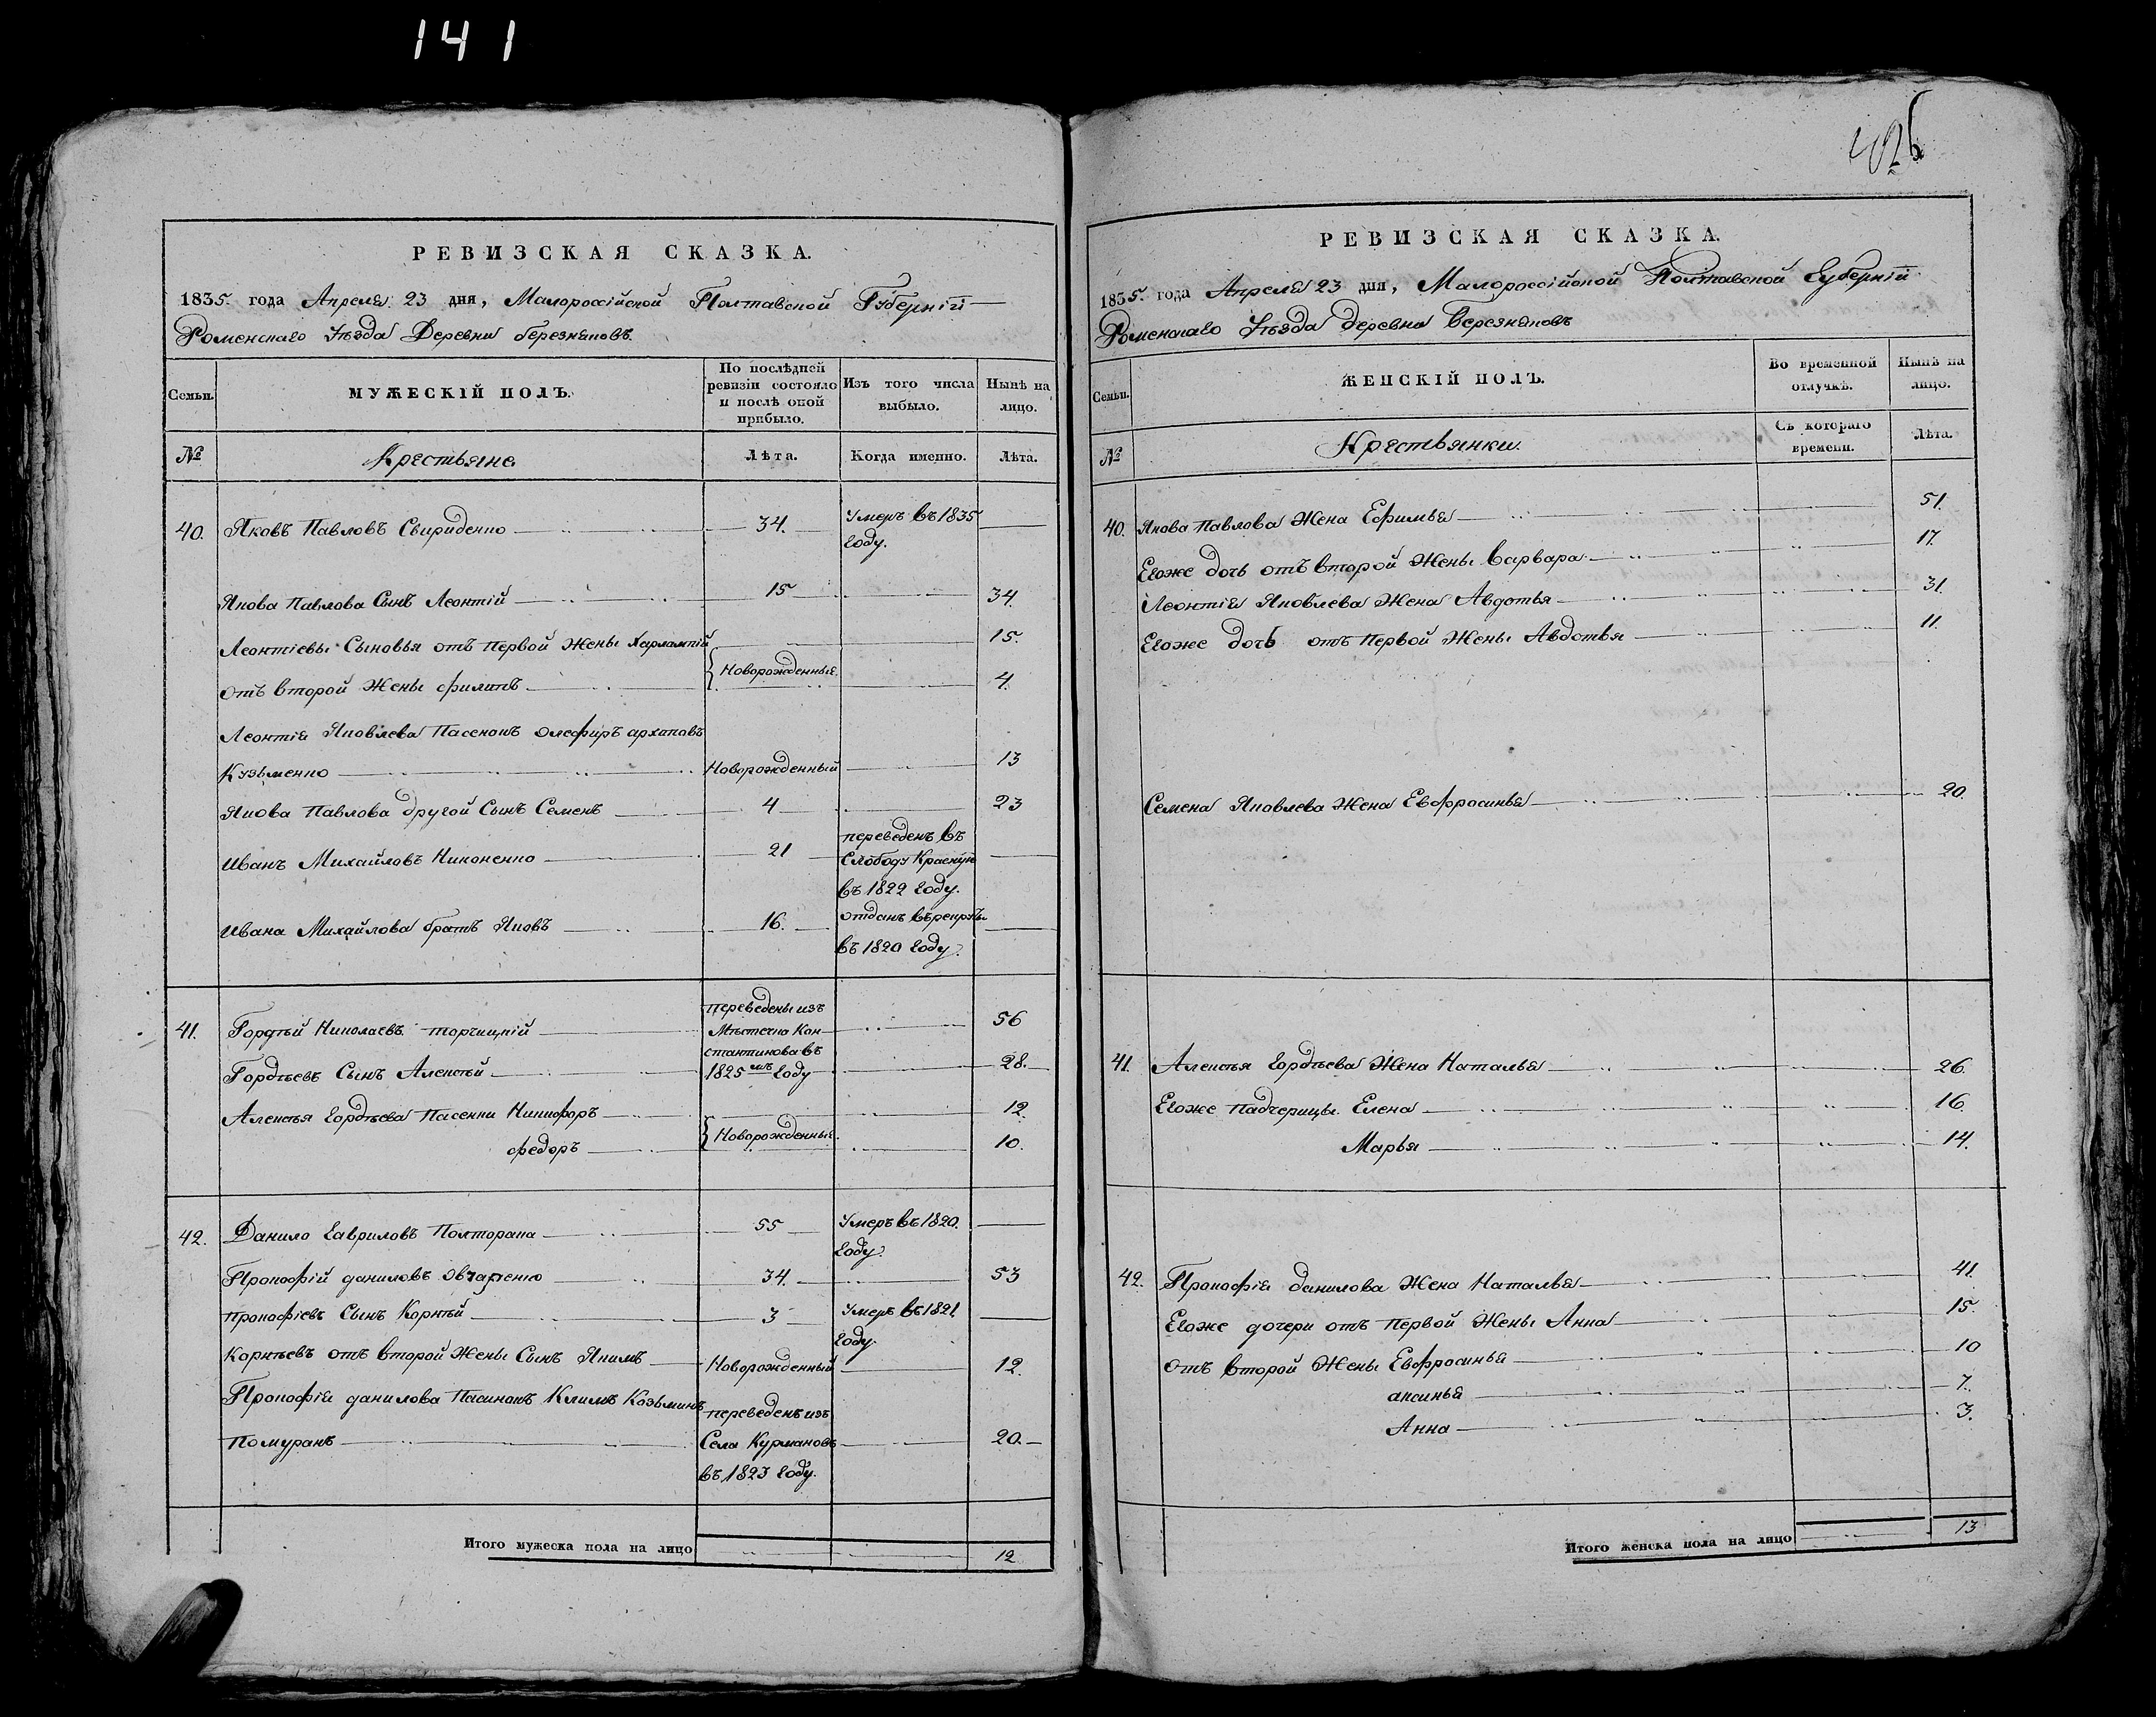 141
РЕВИЗСКАЯ СКАЗКА.
1835. года Апреля 23 дня, Малороссійской Полтавской Губерніи
Роменскаго Уѣзда Деревни березняковъ.
Семьи.
МУЖЕСКІЙ ПОЛЪ.
По послѣдней ревизіи состояло и послѣ оной прибыло.
Изъ того числа выбыло.
Нынѣ на лицо.
№
Крестьяне
Лѣта.
Когда именно.
Лѣта.
40. Яковъ Павловъ Свириденко 34. Умеръ въ 1835
году.
Якова Павлова Сынъ Леонтій 15 34.
Леонтіевы Сыновья отъ первой Жены Харлампій 15.
Новорожденные.
отъ второй Жены филипъ 4.
Леонтія Яковлева Пасенокъ олефиръ архиповъ
Кузьменко Новорожденный 13
Якова Павлова другой Сынъ Семенъ 4 23
Иванъ Михайловъ Никоненко 21 переведенъ въ
Слободу Красную
въ 1822 году.
Ивана Михайлова братъ Яковъ 16. отданъ въ рекруты
въ 1820 году.
41. Гордѣй Николаевъ торчицкій переведены изъ 56
Мѣстечка Кон
стантинова въ
Гордѣевъ Сынъ Алексѣй 1825мъ году 28.
Алексѣя Гордѣева Пасенки Никифоръ 12.
Новорожденные.
федоръ 10.
42. Данило Гавриловъ Полторака 55 Умеръ въ 1820.
году.
Прокофій даниловъ Овчаренко 34. 53
прокофіевъ Сынъ Корнѣй 3 Умеръ въ 1821.
году.
Корнѣевъ отъ второй Жены Сынъ Якимъ Новорожденный 12.
Прокофія данилова Пасинокъ Климъ Козьминъ переведенъ изъ
Помуранъ Села Курмановъ 20.
въ 1823 году.
Итого мужеска пола на лицо 12
РЕВИЗСКАЯ СКАЗКА.
1835. года Апреля 23 дня, Малороссійской Полтавской Губерніи
Роменскаго Уѣзда деревни Березняковъ
Семьи.
ЖЕНСКІЙ ПОЛЪ.
Во временной отлучкѣ.
Нынѣ на лицо.
№
Крестьянки.
Съ котораго времени.
Лѣта.
40. Якова Павлова Жена Ефимья 51.
Егоже дочь отъ второй Жены Варвара 17.
Леонтія Яковлева Жена Авдотья 31.
Егоже дочь отъ Первой Жены Авдотья 11.
Семена Яковлева Жена Евфросинья 20.
41. Алексѣя Гордѣева Жена Наталья 26.
Егоже Падчерицы Елена 16.
Марья 14.
42. Прокофія данилова Жена Наталья 41.
Егоже дочери отъ первой Жены Анна 15.
отъ второй Жены Евфросинья 10
аксинья 7.
Анна 3.
Итого женска пола на лицо 13